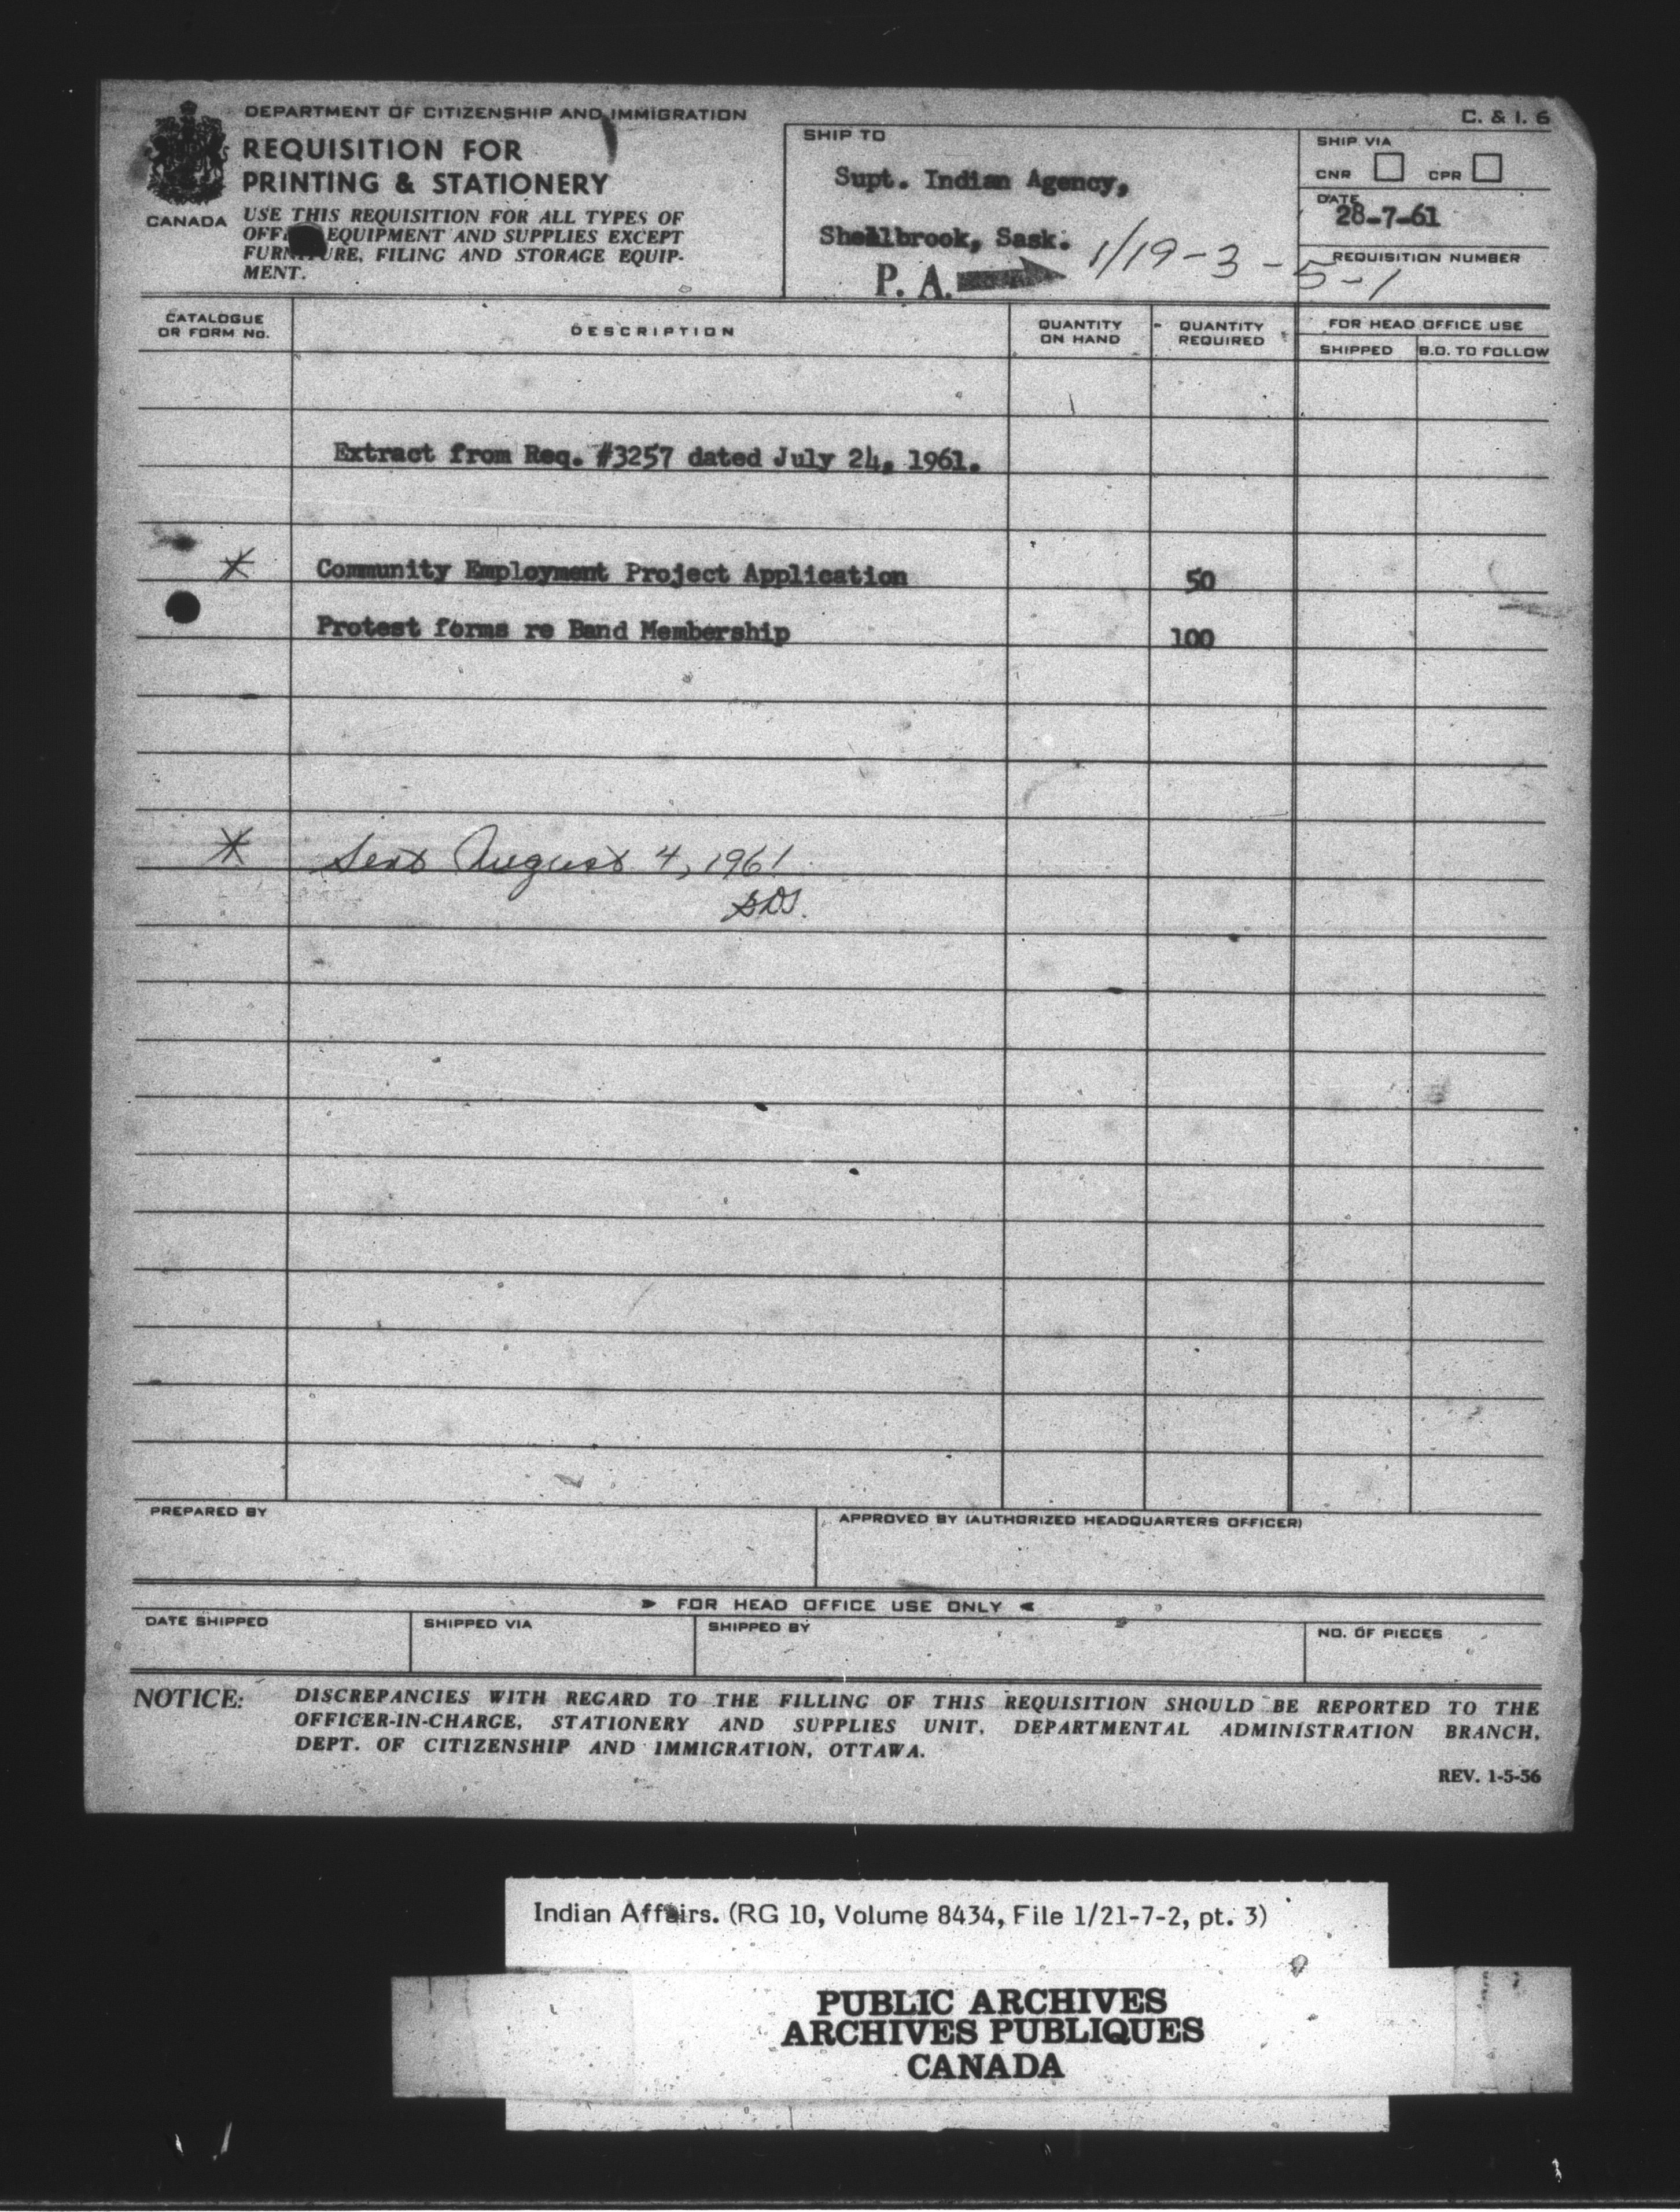 DEPARTMENT OF CITIZENSHIP AND IMMIGRATION
C. & I. 6
REQUISITION FOR
PRINTING & STATIONERY
CANADA
USE THIS REQUISITION FOR ALL TYPES OF
EQUIPMENT AND SUPPLIES EXCEPT
FURNITURE, FILING AND STORAGE EQUIP-
MENT.
SHIP TO
Supt. Indian Agency,
Shellbrook, Sask.
P. A.
1/19-3-5-1
SHIP VIA
CNR CPR
DATE
28-7-61
REQUISITION NUMBER
CATALOGUE
OR FORM No.
DESCRIPTION
QUANTITY
ON HAND
QUANTITY
REQUIRED
FOR HEAD OFFICE USE
SHIPPED B.O. TO FOLLOW
Extract from Req. #3257 dated July 24, 1961.
* Community Employment Project Application 50
Protest forms re Band Membership 100
* Sent August 4, 1961
PREPARED BY
APPROVED BY (AUTHORIZED HEADQUARTERS OFFICER)
FOR HEAD OFFICE USE ONLY
DATE SHIPPED SHIPPED VIA SHIPPED BY NO. OF PIECES
NOTICE: DISCREPANCIES WITH REGARD TO THE FILLING OF THIS REQUISITION SHOULD BE REPORTED TO THE
OFFICER-IN-CHARGE, STATIONERY AND SUPPLIES UNIT, DEPARTMENTAL ADMINISTRATION BRANCH,
DEPT. OF CITIZENSHIP AND IMMIGRATION, OTTAWA.
REV. 1-5-56
Indian Affairs. (RG 10, Volume 8434, File 1/21-7-2, pt. 3)
PUBLIC ARCHIVES
ARCHIVES PUBLIQUES
CANADA